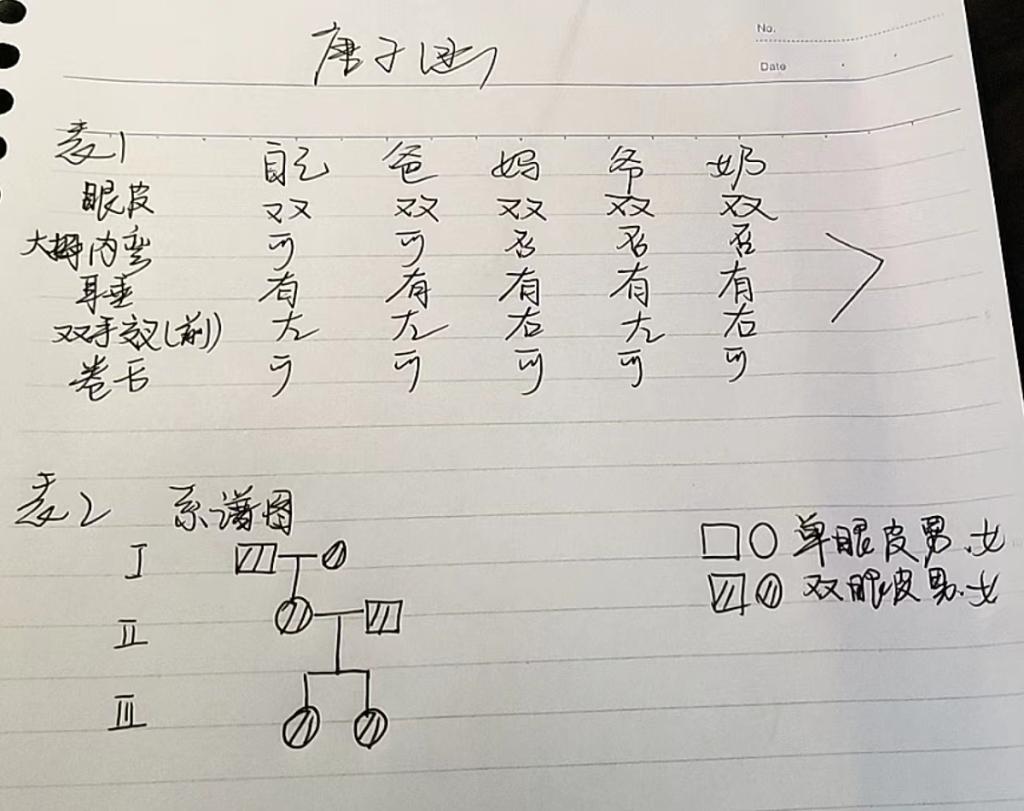 No.
唐子涵
Date
表1
自己 爸 妈 爷 奶
眼皮 双 双 双 双 双
大拇内弯 可 可 否 否 否
耳垂 有 有 有 有 有
双手交(前) 左 左 右 左 右
卷舌 可 可 可 可 可
表2 系谱图
I
□○ 单眼皮男.女
II
双眼皮男.女
III